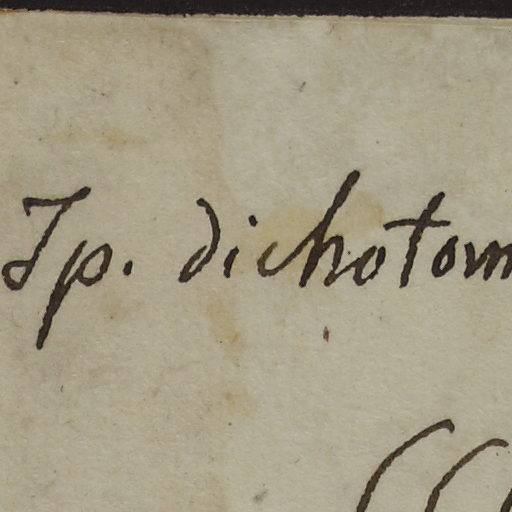 Jp. dichotom